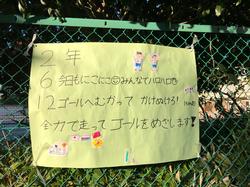 2年
6 今日もにこにこ☺みんなでハロハロ
12ゴールへむかって かけぬけろ!
全力で走って ゴールをめざします!